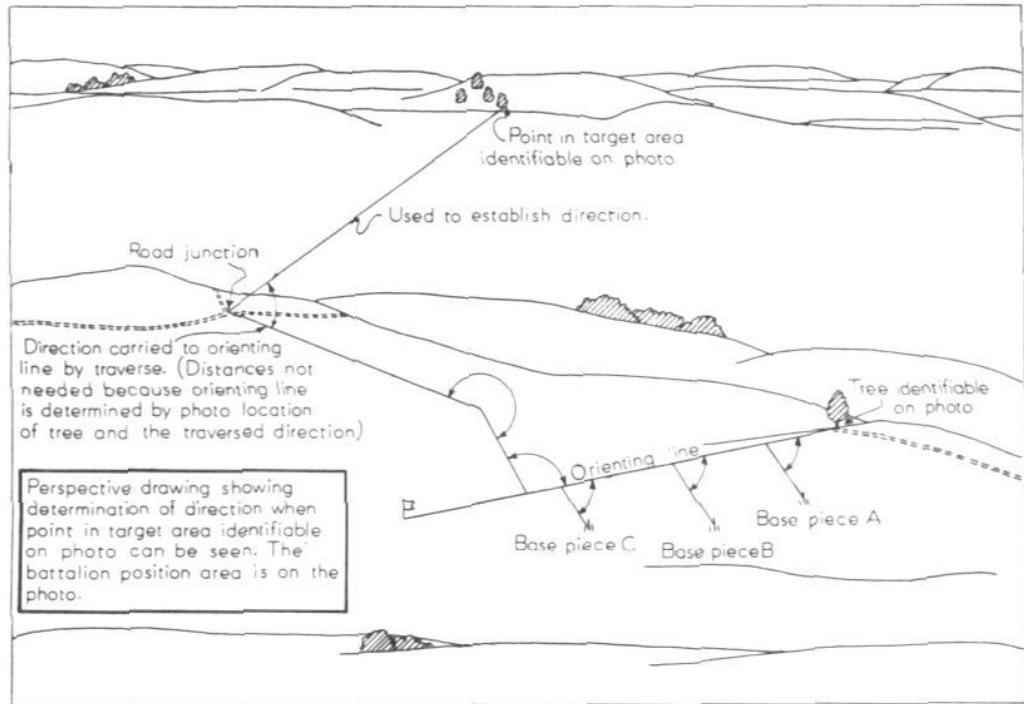 Point in target area
identifiable on photo
Used to establish direction.
Road junction
Direction carried to orienting
line by traverse. (Distances not
needed because orienting line
is determined by photo location
of tree and the traversed direction)
Tree identifiable
on photo
Orienting line
Base piece A
Base piece B
Base piece C
Perspective drawing showing
determination of direction when
point in target area identifiable
on photo can be seen. The
battalion position area is on the
photo.